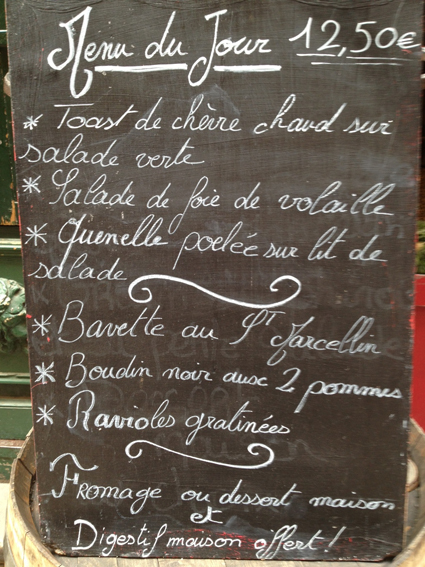 Menu du Jour 12,50€
* Toast de chèvre chaud sur
salade verte
* Salade de foie de volaille
* Quenelle poelée sur lit de
salade
* Bavette au ST Marcellin
* Boudin noir aux 2 pommes
* Ravioles gratinées
Fromage ou dessert maison
et
Digestif maison offert!